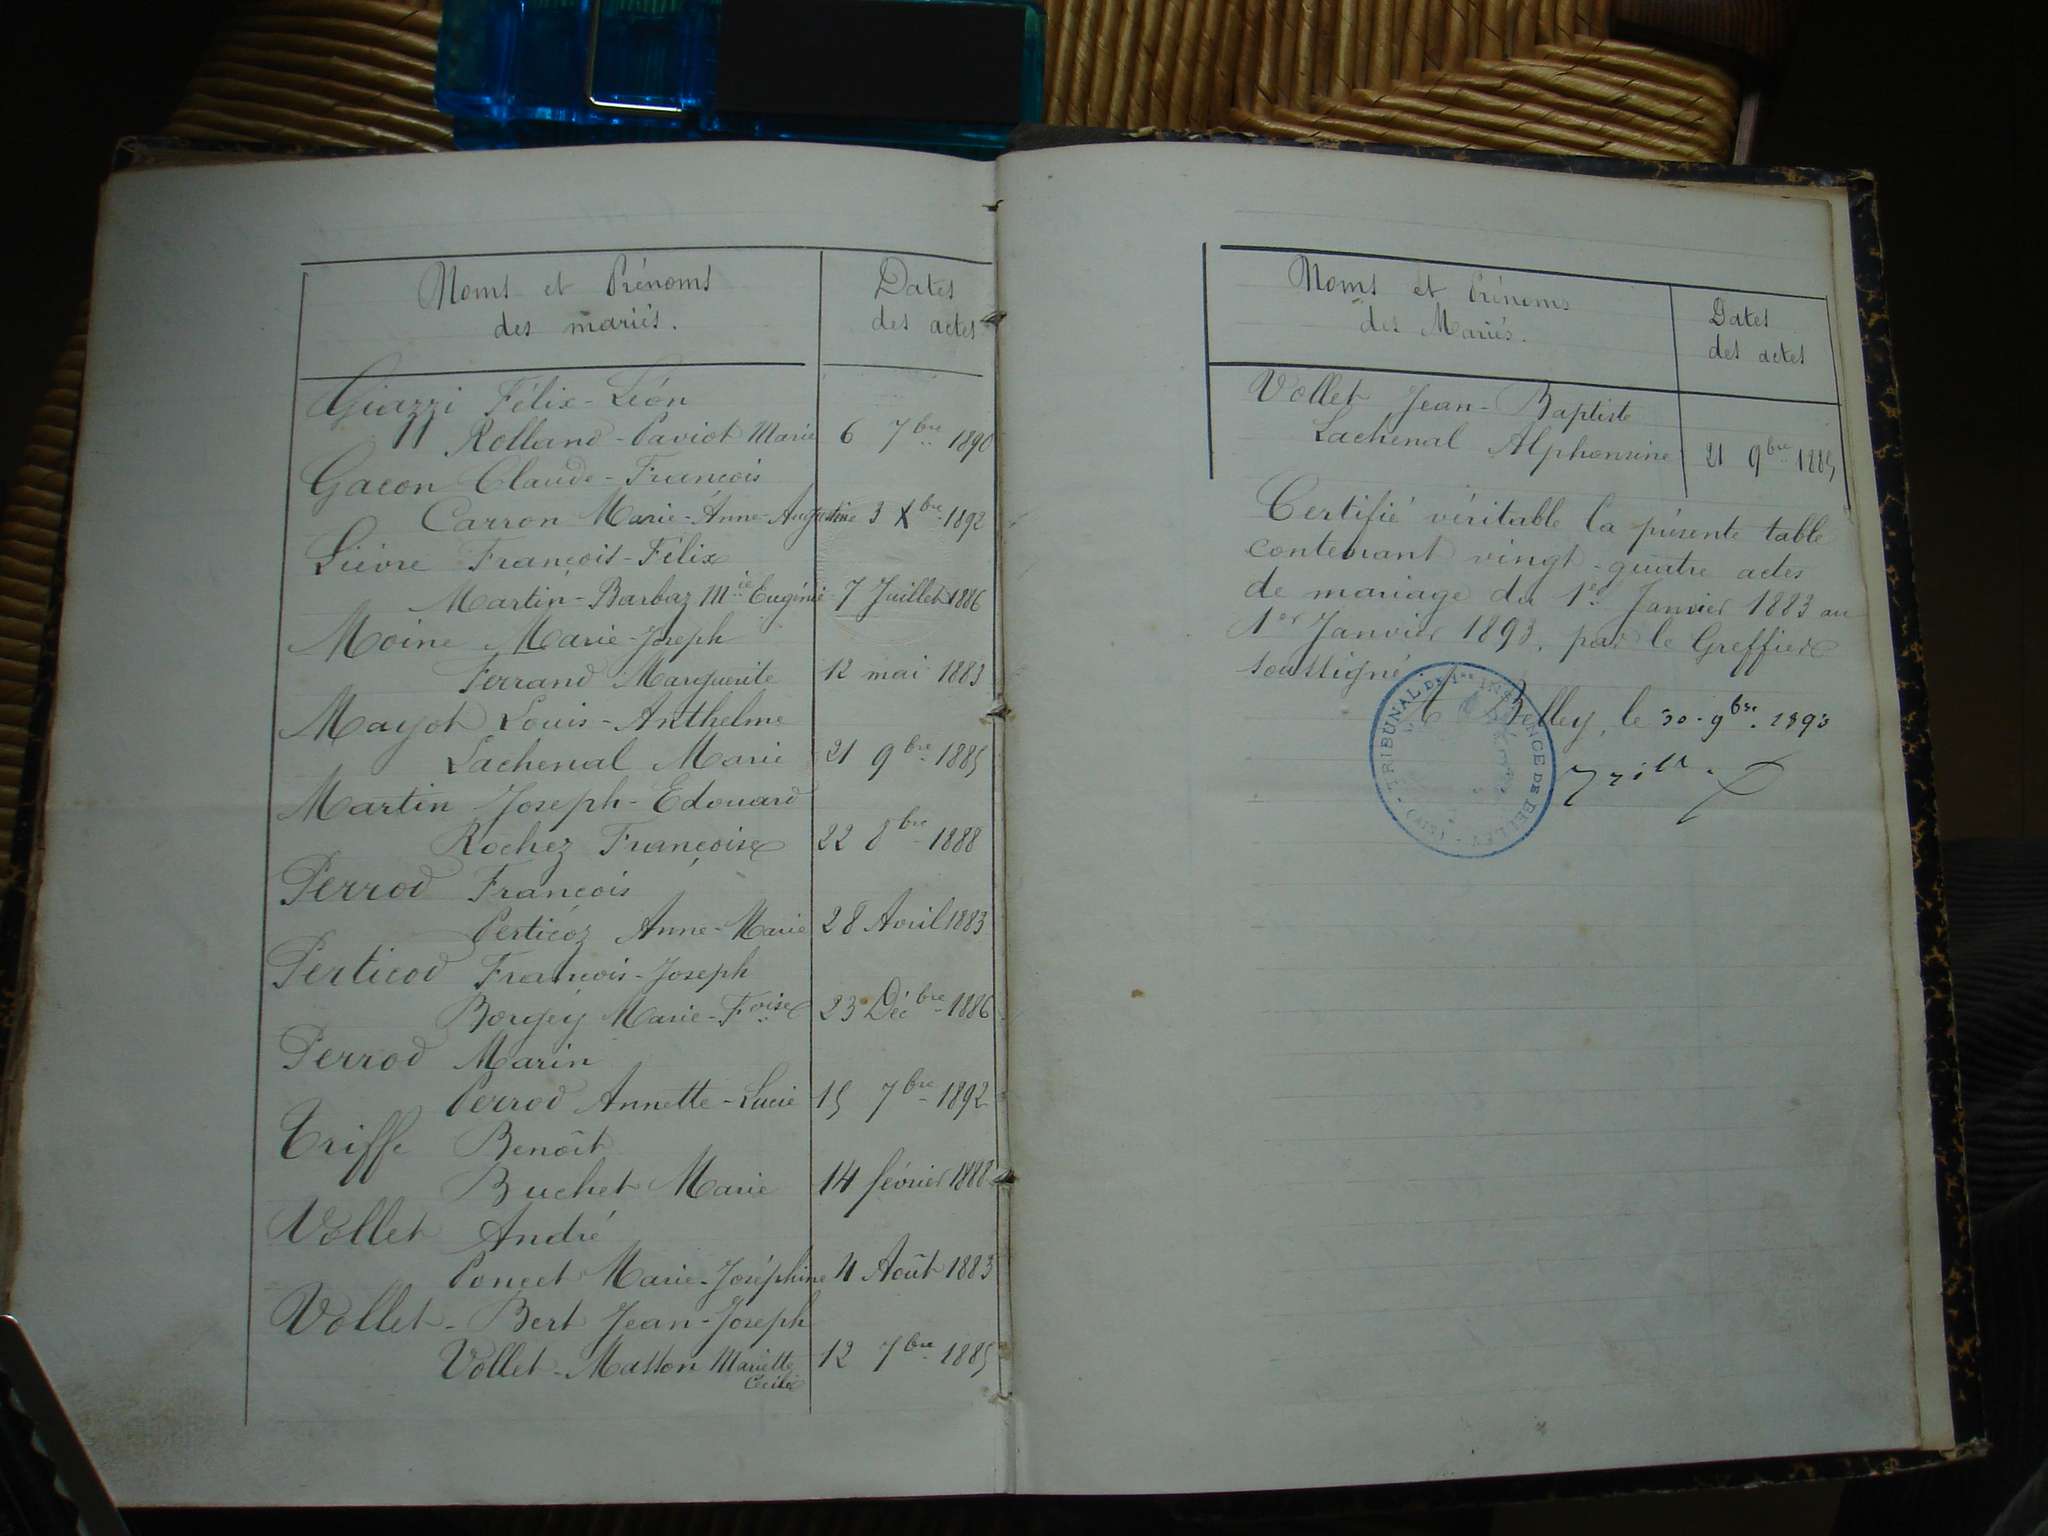 Noms et Prénoms
des mariés.
Dates
des actes
Giazzi Félix-Léon
Rolland-Paviot Marie 6 7bre 1890
Gacon Claude-François
Carron Marie-Anne-Augustine 3 Xbre 1892
Lièvre François-Félix
Martin-Barbaz Mie Eugénie 7 Juillet 1886
Moine Marie-Joseph
Ferrand Marguerite 12 mai 1883
Mayot Louis-Anthelme
Lachenal Marie 21 9bre 1885
Martin Joseph-Edouard
Rochez Françoise 22 8bre 1888
Perrod François
Perticoz Anne-Marie 28 Avril 1883
Perticod François-Joseph
Borgey Marie-Foise 23 Décbre 1886
Perrod Marin
Perrod Annette-Lucie 15 7bre 1892
Triffe Benoît
Buchet Marie 14 février 1888
Vollet André
Poncet Marie-Joséphine 4 Août 1883
Vollet-Bert Jean-Joseph
Vollet-Masson Mariette 12 7bre 1885
Cécile
Noms et Prénoms
des Mariés.
Dates
des actes
Vollet Jean-Baptiste
Lachenal Alphonsine 21 9bre 1885
Certifié véritable la présente table
contenant vingt-quatre actes
de mariage du 1er Janvier 1883 au
1er Janvier 1893, par le Greffier
soussigné
A Belley, le 30 9bre 1893
TRIBUNAL DE 1re INSTANCE DE BELLEY (AIN)